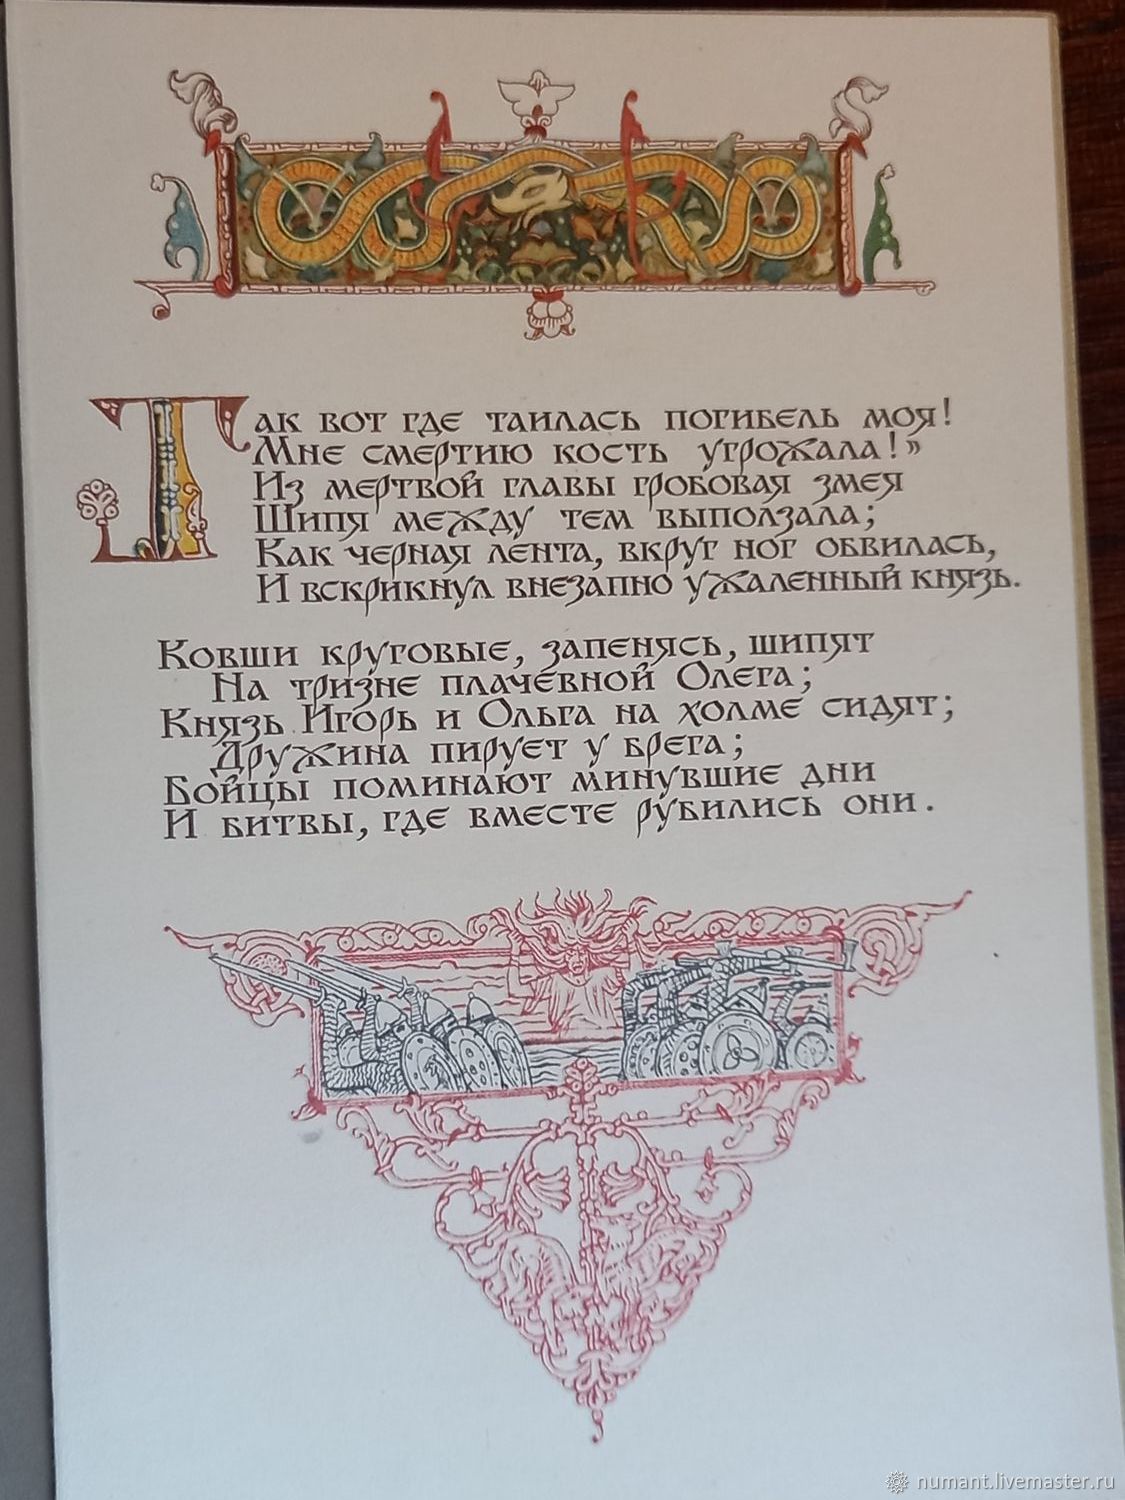 Так вот где таилась погибель моя!
Мне смертию кость угрожала!»
Из мертвой главы гробовая змея
Шипя между тем выползала;
Как черная лента, вкруг ног обвилась,
И вскрикнул внезапно ужаленный князь.
Ковши круговые, запенясь, шипят
На тризне плачевной Олега;
Князь Игорь и Ольга на холме сидят;
Дружина пирует у брега;
Бойцы поминают минувшие дни
И битвы, где вместе рубились они.
numant.livemaster.ru